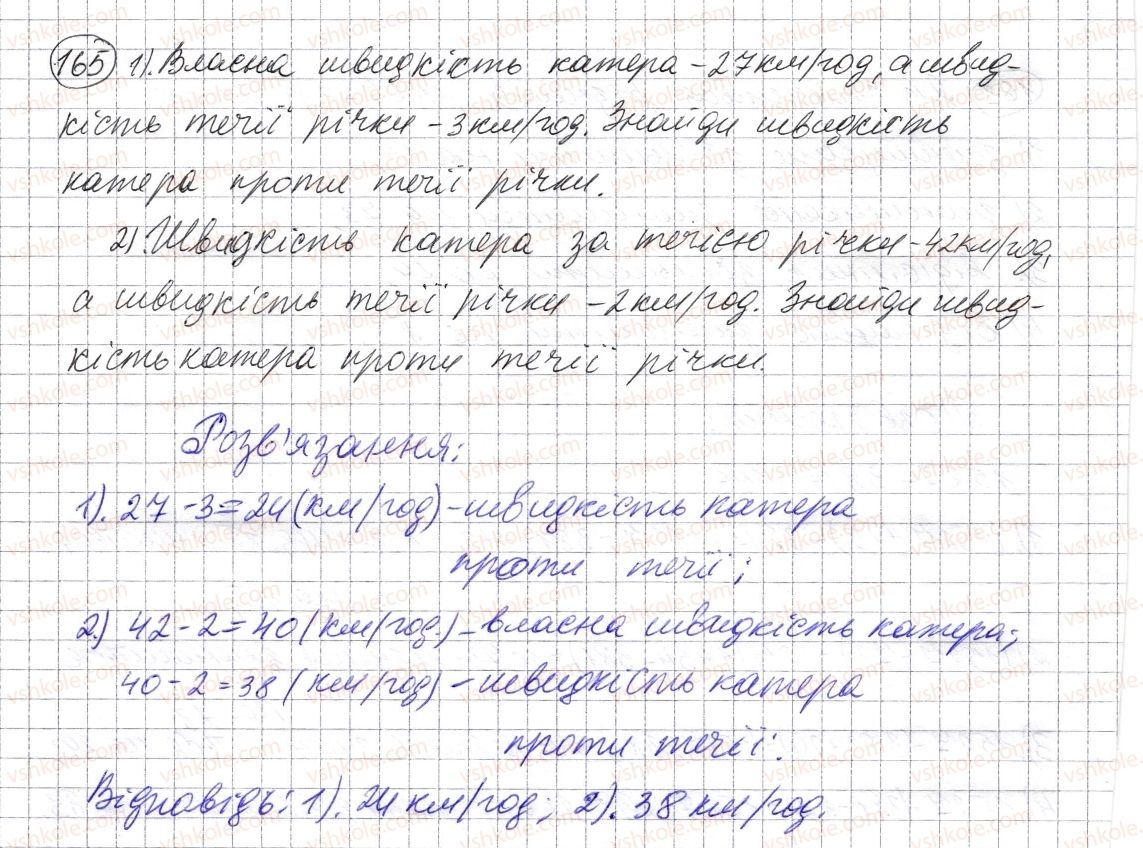 165 1). Власна швидкість катера - 27 км/год, а швид-
кість течії річки - 3 км/год. Знайди швидкість
катера проти течії річки.
2). Швидкість катера за течією річки - 42 км/год,
а швидкість течії річки - 2 км/год. Знайди швид-
кість катера проти течії річки.
Розв'язання:
1). 27 - 3 = 24 (км/год) - швидкість катера
проти течії;
2.) 42 - 2 = 40 (км/год.) - власна швидкість катера;
40 - 2 = 38 (км/год) - швидкість катера
проти течії.
Відповідь: 1). 24 км/год; 2). 38 км/год.